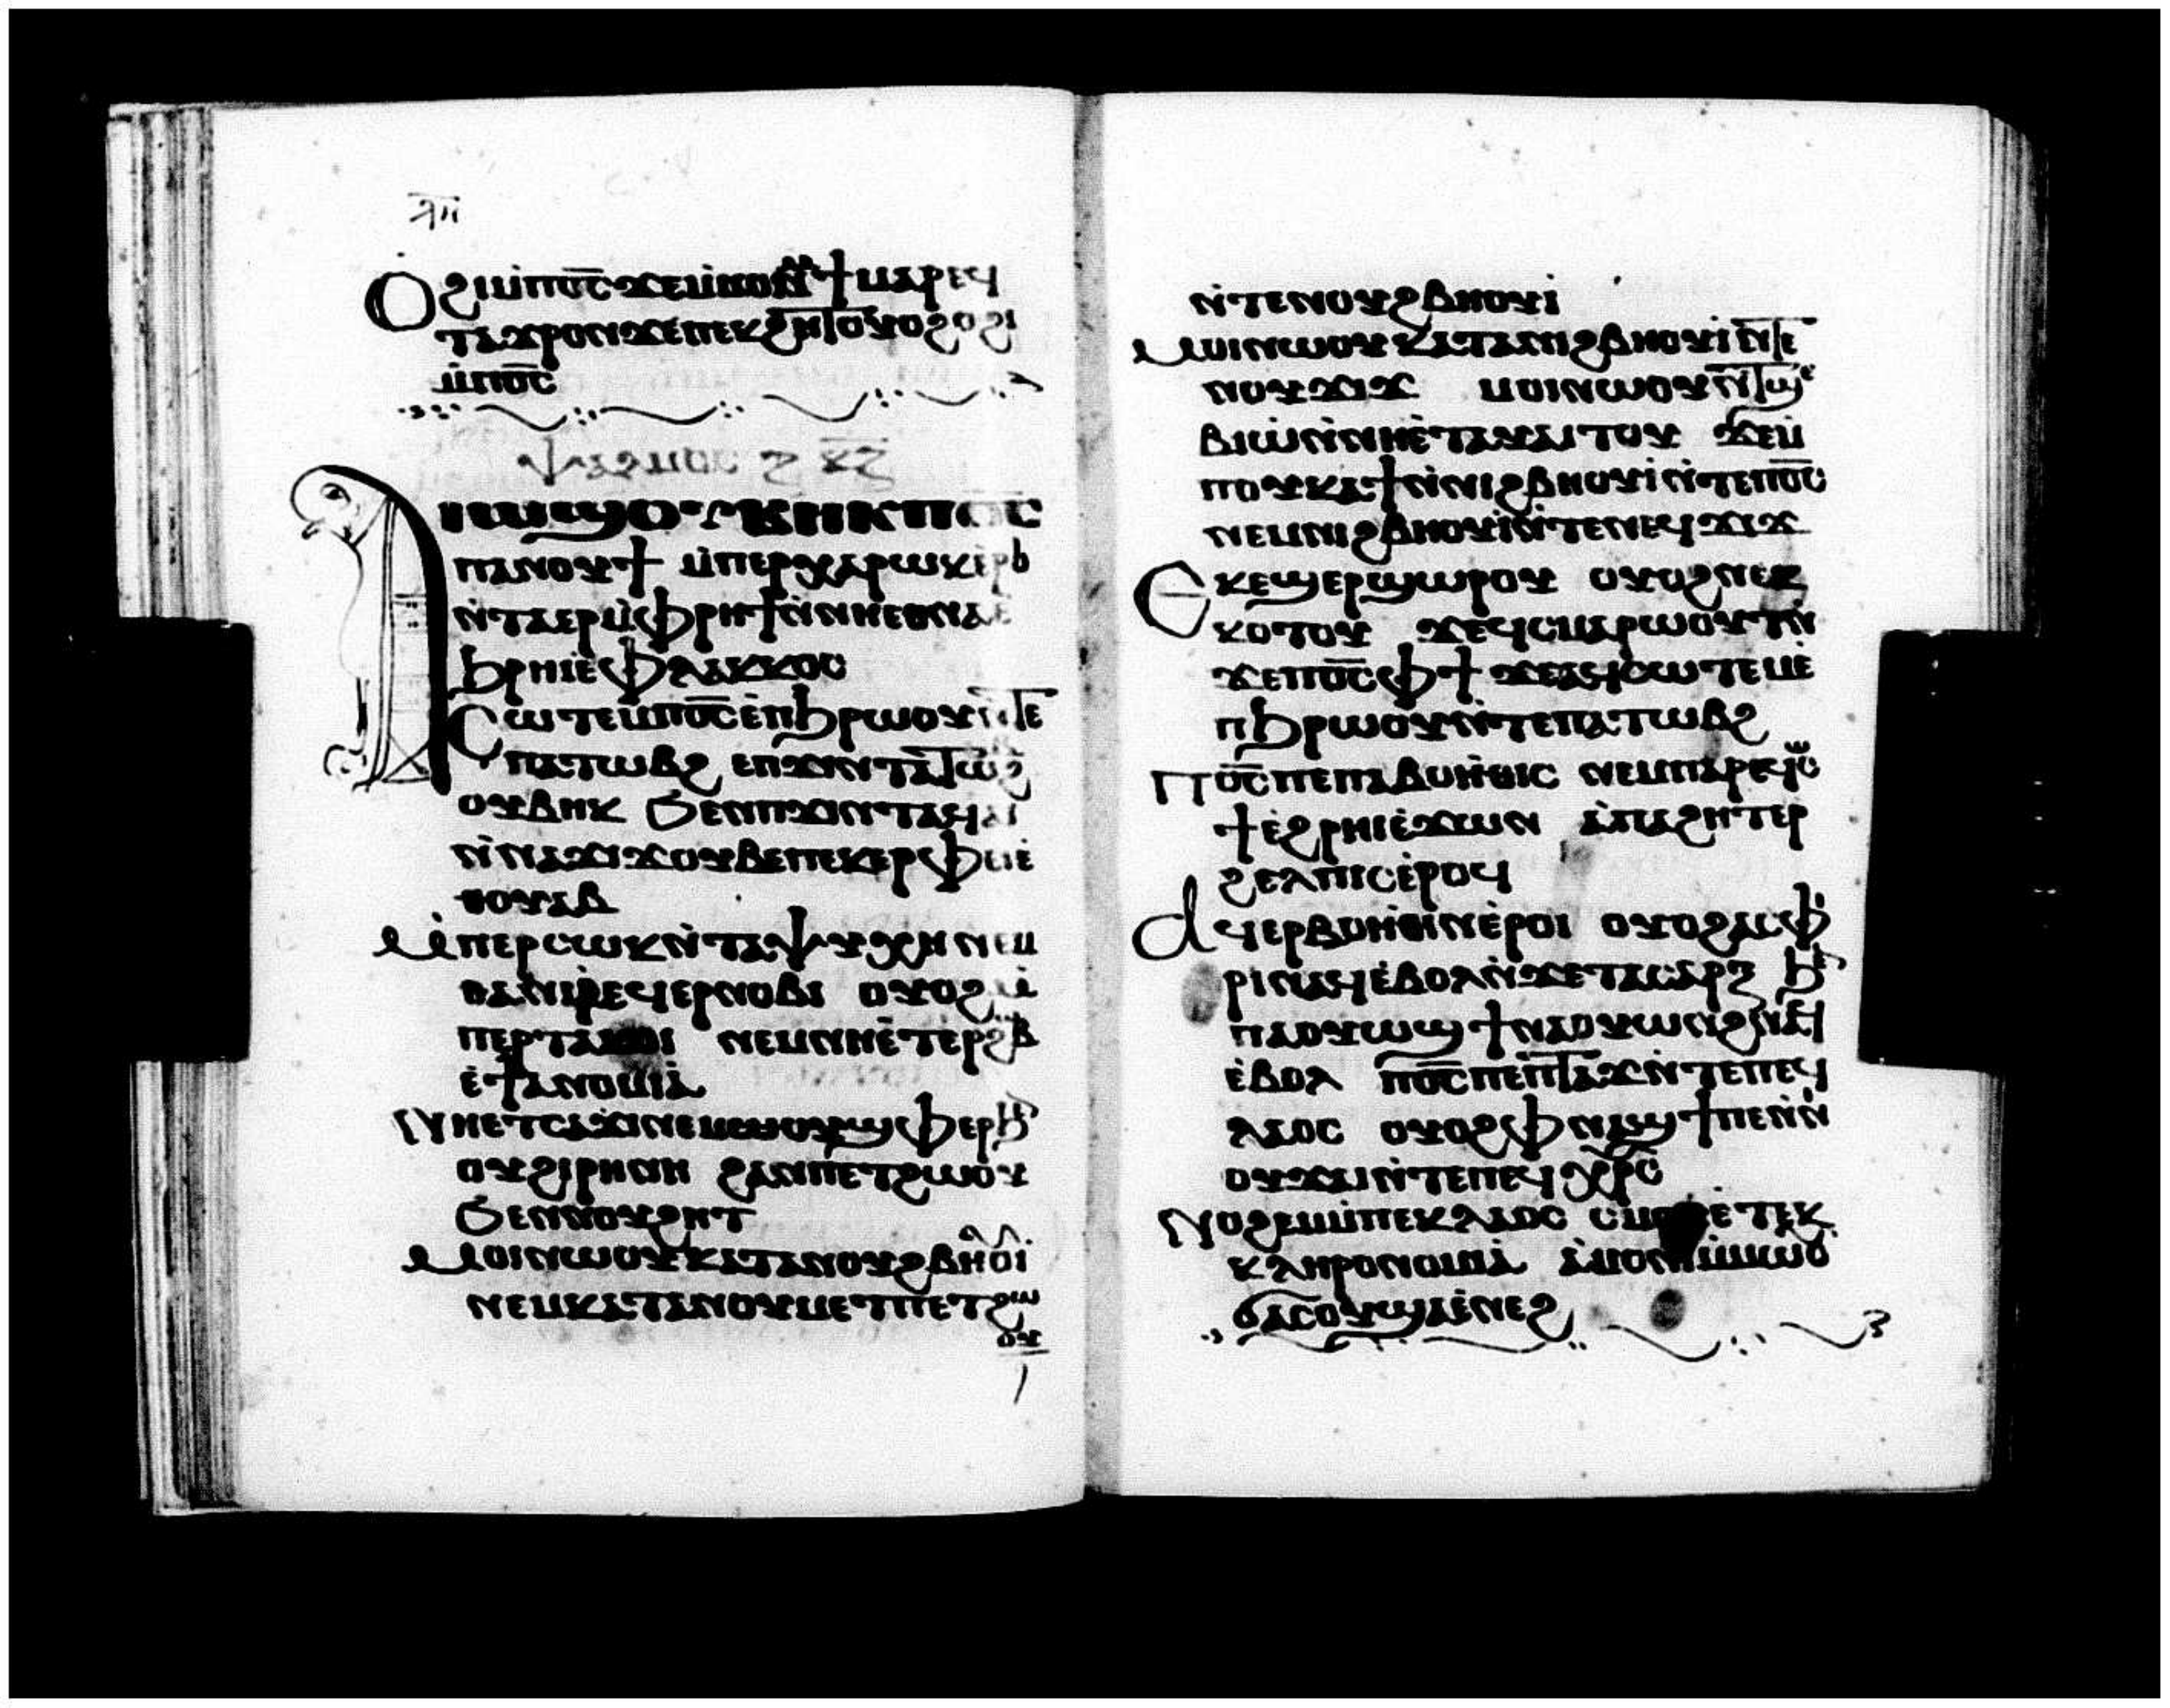 Ⲟϩⲓⲙ̀ⲡⲟ̅ⲥ̅ ϫⲉⲙⲛⲟⲙϯ ⲙⲁⲣⲉϥ
ⲧⲁϫⲣⲟⲛϫⲉⲡⲉⲕϩⲏⲧ ⲟⲩⲟϩ ⲟϩⲓ
ⲙ̀ⲡⲟ̅ⲥ̅
ⲯⲁⲗⲙⲟⲥ ⲕ̅ⲍ̅
Ⲁⲓⲱϣ ⲟⲩⲃⲏⲕ ⲡⲟ̅ⲥ̅
ⲡⲁⲛⲟⲩϯ ⲙ̀ⲡⲉⲣⲭⲁⲣⲱⲕ ⲉ̀ⲣⲟ
ⲛ̀ⲧⲁⲉⲣⲙ̀ⲫⲣⲏϯⲛ̀ⲛⲏⲉⲑⲛⲁ ⲉ
ϧⲣⲏⲓⲉ̀ⲫⲗⲁⲕⲕⲟⲥ
Ⲥⲱⲧⲉⲙⲡⲟ̅ⲥ̅ⲉ̀ⲡϧⲣⲱⲟⲩⲛ̀ⲧⲉ
ⲡⲁⲧⲱⲃϩ ⲉⲡϫⲓⲛⲧⲁⲧⲱⲃϩ
ⲟⲩⲃⲏⲕ ϧⲉⲛⲡϫⲓⲛⲧⲁϥⲁⲓ
ⲛ̀ⲛⲁϫⲓϫⲟⲩⲃⲉⲡⲉⲕⲉⲣⲫⲉⲓⲉ̀
ⲑⲟⲩⲁⲃ
Ⲙ̀ⲡⲉⲣⲥⲱⲕⲛ̀ⲧⲁⲯⲩⲭⲏ ⲛⲉⲙ
ϩⲁⲛⲓⲣⲉϥⲉⲣⲛⲟⲃⲓ ⲟⲩⲟϩ ⲙ̀
ⲡⲉⲣⲧⲁⲕⲟⲓ ⲛⲉⲙⲛⲏⲉ̀ⲧⲉⲣϩⲃ
ⲉ̀ϯⲁⲛⲟⲙⲓⲁ̀
Ⲛⲏⲉⲧⲥⲁϫⲓⲛⲉⲙⲛⲟⲩϣⲫⲉⲣϧⲉ
ⲟⲩϩⲓⲣⲏⲛⲏ ϩⲁⲛⲡⲉⲧϩⲱⲟⲩ
ϧⲉⲛⲛⲟⲩϩⲏⲧ
Ⲙⲟⲓⲛⲱⲟⲩⲕⲁⲧⲁⲛⲟⲩϩⲃⲏⲟⲩⲓ
ⲛⲉⲙⲕⲁⲧⲁⲛⲟⲩⲙⲉⲧⲡⲉⲧϩⲱ
ⲟⲩ
ⲛ̀ⲧⲉⲛⲟⲩϩⲃⲏⲟⲩⲓ
Ⲙⲟⲓⲛⲱⲟⲩ ⲕⲁⲧⲁⲛⲓϩⲃⲏⲟⲩⲓⲛ̀ⲧⲉ
ⲛⲟⲩϫⲓϫ ⲙⲟⲓⲛⲱⲟⲩⲛ̀ⲧϣⲉ
ⲃⲓⲱ̀ⲛ̀ⲛⲏⲉ̀ⲧⲁⲩⲁⲓⲧⲟⲩ ϫⲉⲙ̀
ⲡⲟⲩⲕⲁϯⲛ̀ⲛⲓϩⲃⲏⲟⲩⲓⲛ̀ⲧⲉⲡⲟ̅ⲥ̅
ⲛⲉⲙⲛⲓϩⲃⲏⲟⲩⲓⲛ̀ⲧⲉⲛⲉϥϫⲓϫ
Ⲉⲕⲉϣⲉⲣϣⲱⲣⲟⲩ ⲟⲩⲟϩⲛⲉⲕ
ⲕⲟⲧⲟⲩ ϫⲉϥⲥⲙⲁⲣⲱⲟⲩⲧⲛ̀
ϫⲉⲡⲟ̅ⲥ̅ⲫϯ ϫⲉⲁϥⲥⲱⲧⲉⲙⲉ̀
ⲡϧⲣⲱⲟⲩⲛ̀ⲧⲉⲡⲁⲧⲱⲃϩ
Ⲡⲟ̅ⲥ̅ⲡⲉⲡⲁⲃⲟⲏ̀ⲑⲓⲥ ⲛⲉⲙⲡⲁⲣⲉϥⲱ
ϯⲉ̀ϩⲣⲏⲓⲉ̀ϫⲱⲛ ⲁ̀ⲡⲁϩⲏⲧⲉⲣ
ϩⲉⲗⲡⲓⲥⲉ̀ⲣⲟϥ
Ⲁϥⲉⲣⲃⲟⲏ̀ⲑⲓⲛⲉ̀ⲣⲟⲓ ⲟⲩⲟϩⲁⲥⲫ
ⲣⲓⲛⲁϥⲉ̀ⲃⲟⲗⲛ̀ϫⲉⲧⲁⲥⲁⲣⲝ ϧⲉⲛ
ⲡⲁⲟⲩⲱϣ ϯⲛⲁⲟⲩⲱⲛϩⲛⲁϥ
ⲉ̀ⲃⲟⲗ ⲡⲟ̅ⲥ̅ⲡⲉⲡⲧⲁϫⲣⲟⲛ̀ⲧⲉⲡⲉϥ
ⲗⲁⲟⲥ ⲟⲩⲟϩⲫⲛⲁϣϯⲡⲉⲛ̀ⲛⲓ
ⲟⲩϫⲁⲓⲛ̀ⲧⲉⲡⲉϥⲭⲣ̅ⲥ̅
Ⲛⲟϩⲉⲙⲙ̀ⲡⲉⲕⲗⲁⲟⲥ ⲥⲙⲟⲩⲉ̀ⲧⲉⲕ
ⲕⲗⲏⲣⲟⲛⲟⲙⲓⲁ̀ ⲁ̀ⲙⲟⲛⲓⲙ̀ⲙⲱⲟⲩ
ϭⲁⲥⲟⲩϣⲁⲉ̀ⲛⲉϩ